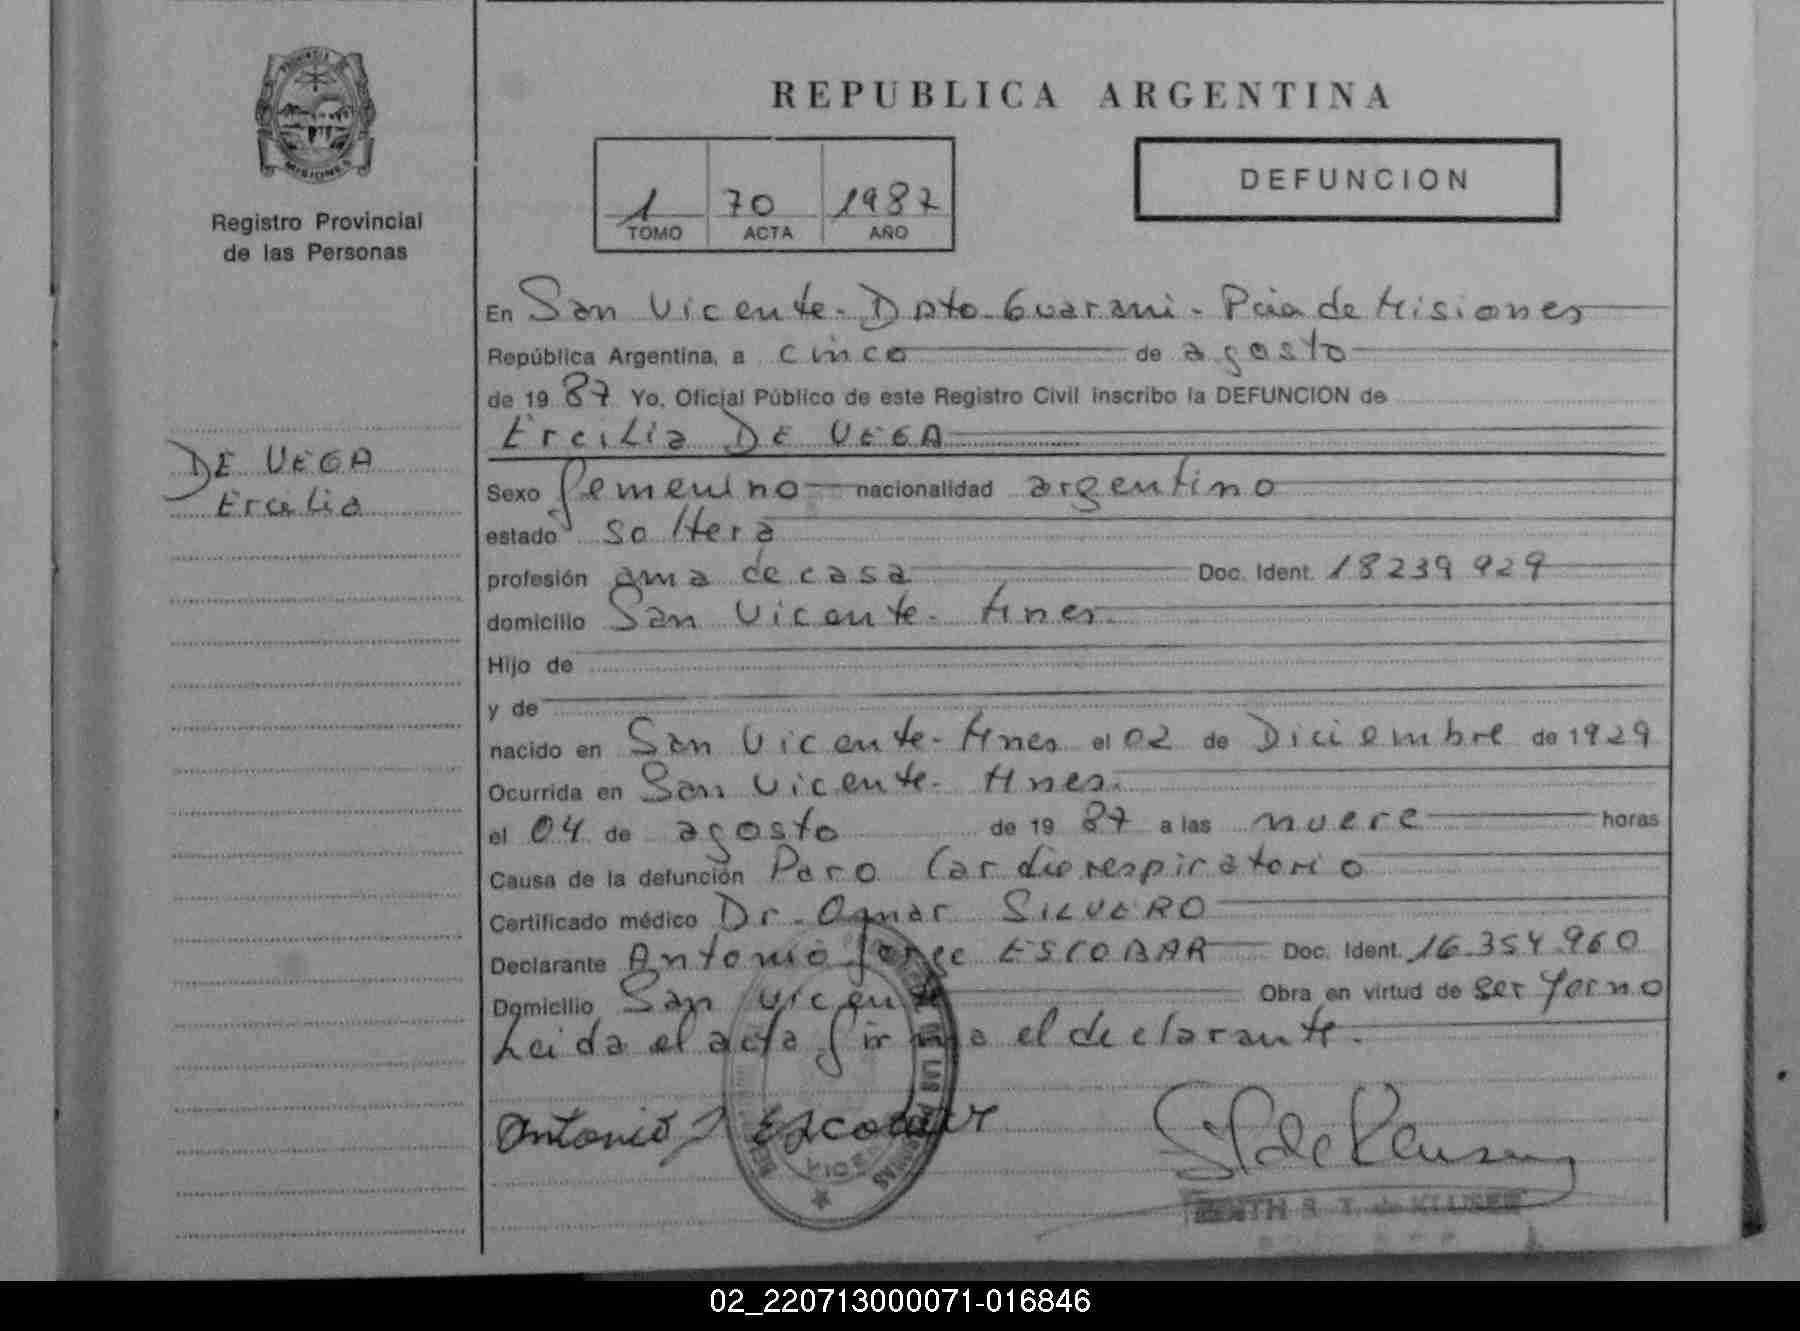 PROVINCIA DE
MISIONES
Registro Provincial
de las Personas
DE VEGA
Ercilia
REPUBLICA ARGENTINA
1 70 1987
TOMO ACTA AÑO
DEFUNCION
En San Vicente - Dpto. Guarani - Pcia de Misiones
República Argentina, a cinco de agosto
de 19 87 Yo, Oficial Público de este Registro Civil inscribo la DEFUNCION de
Ercilia DE VEGA
Sexo femenino nacionalidad argentino
estado soltera
profesión ama de casa Doc. Ident. 18239929
domicilio San Vicente - Mnes.
Hijo de
y de
nacido en San Vicente - Mnes el 02 de Diciembre de 1929
Ocurrida en San Vicente - Mnes.
el 04 de agosto de 19 87 a las nueve horas
Causa de la defunción Paro Cardiorespiratorio
Certificado médico Dr. Omar SILVERO
Declarante Antonio Jorge ESCOBAR Doc. Ident. 16.354.960
Domicilio San Vicente Obra en virtud de ser Yerno
Leida el acta firma el declarante.
Antonio J Escobar
VICEN
02_220713000071-016846